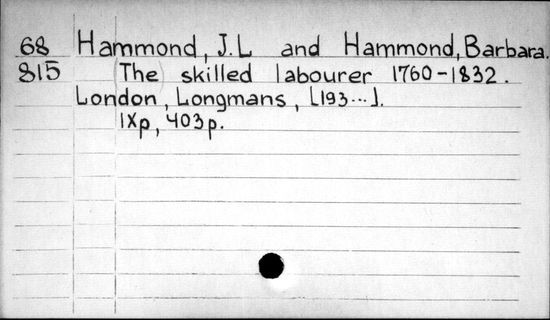 68 Hammond, J.L and Hammond, Barbara.
815 (The) skilled labourer 1760-1832.
London, Longmans, [193...].
IXp, 403p.